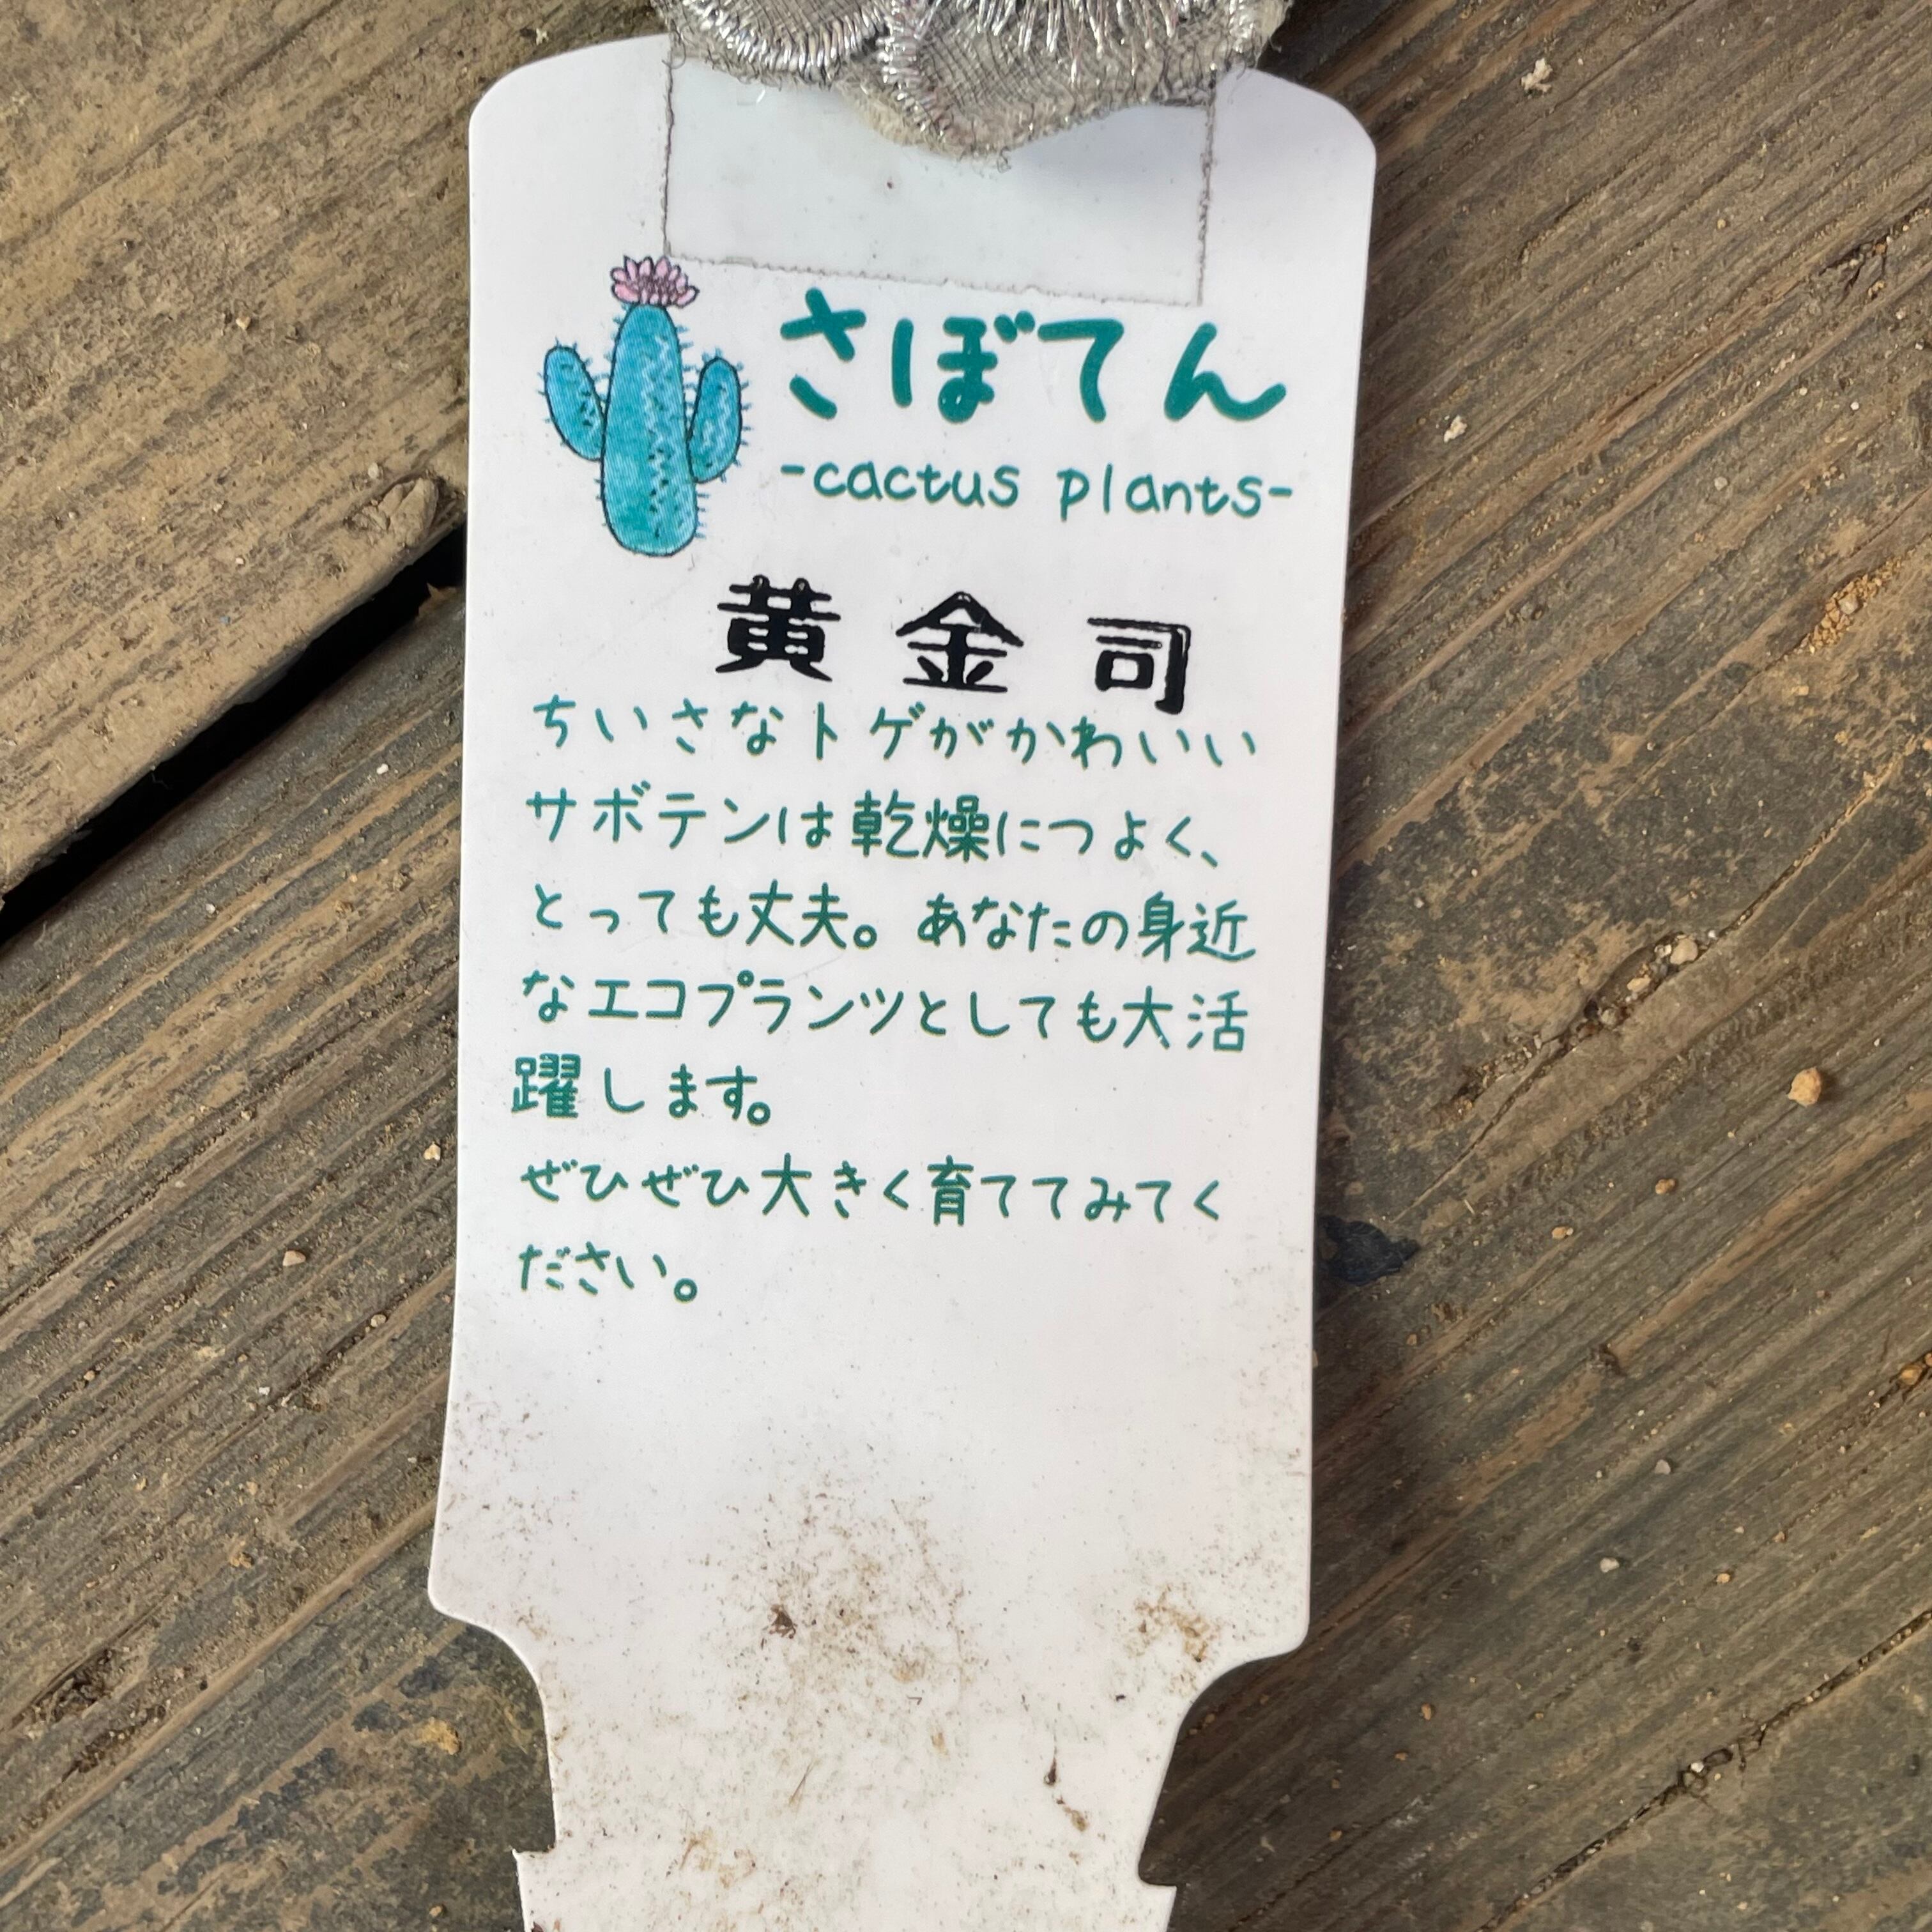 さぼてん
-cactus plants-
黄金司
ちいさなトゲがかわいい
サボテンは乾燥につよく、
とっても丈夫。あなたの身近
なエコプランツとしても大活
躍します。
ぜひぜひ大きく育ててみてく
ださい。